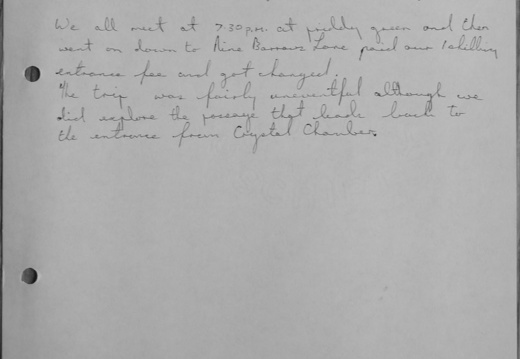 We all meet at 7.30 p.m. at priddy green and then
went on down to Nine Barrows Lane paid our 1 shilling
entrance fee and got changed.
The trip was fairly uneventful although we
did explore the passage that leads back to
the entrance from Crystal Chamber.